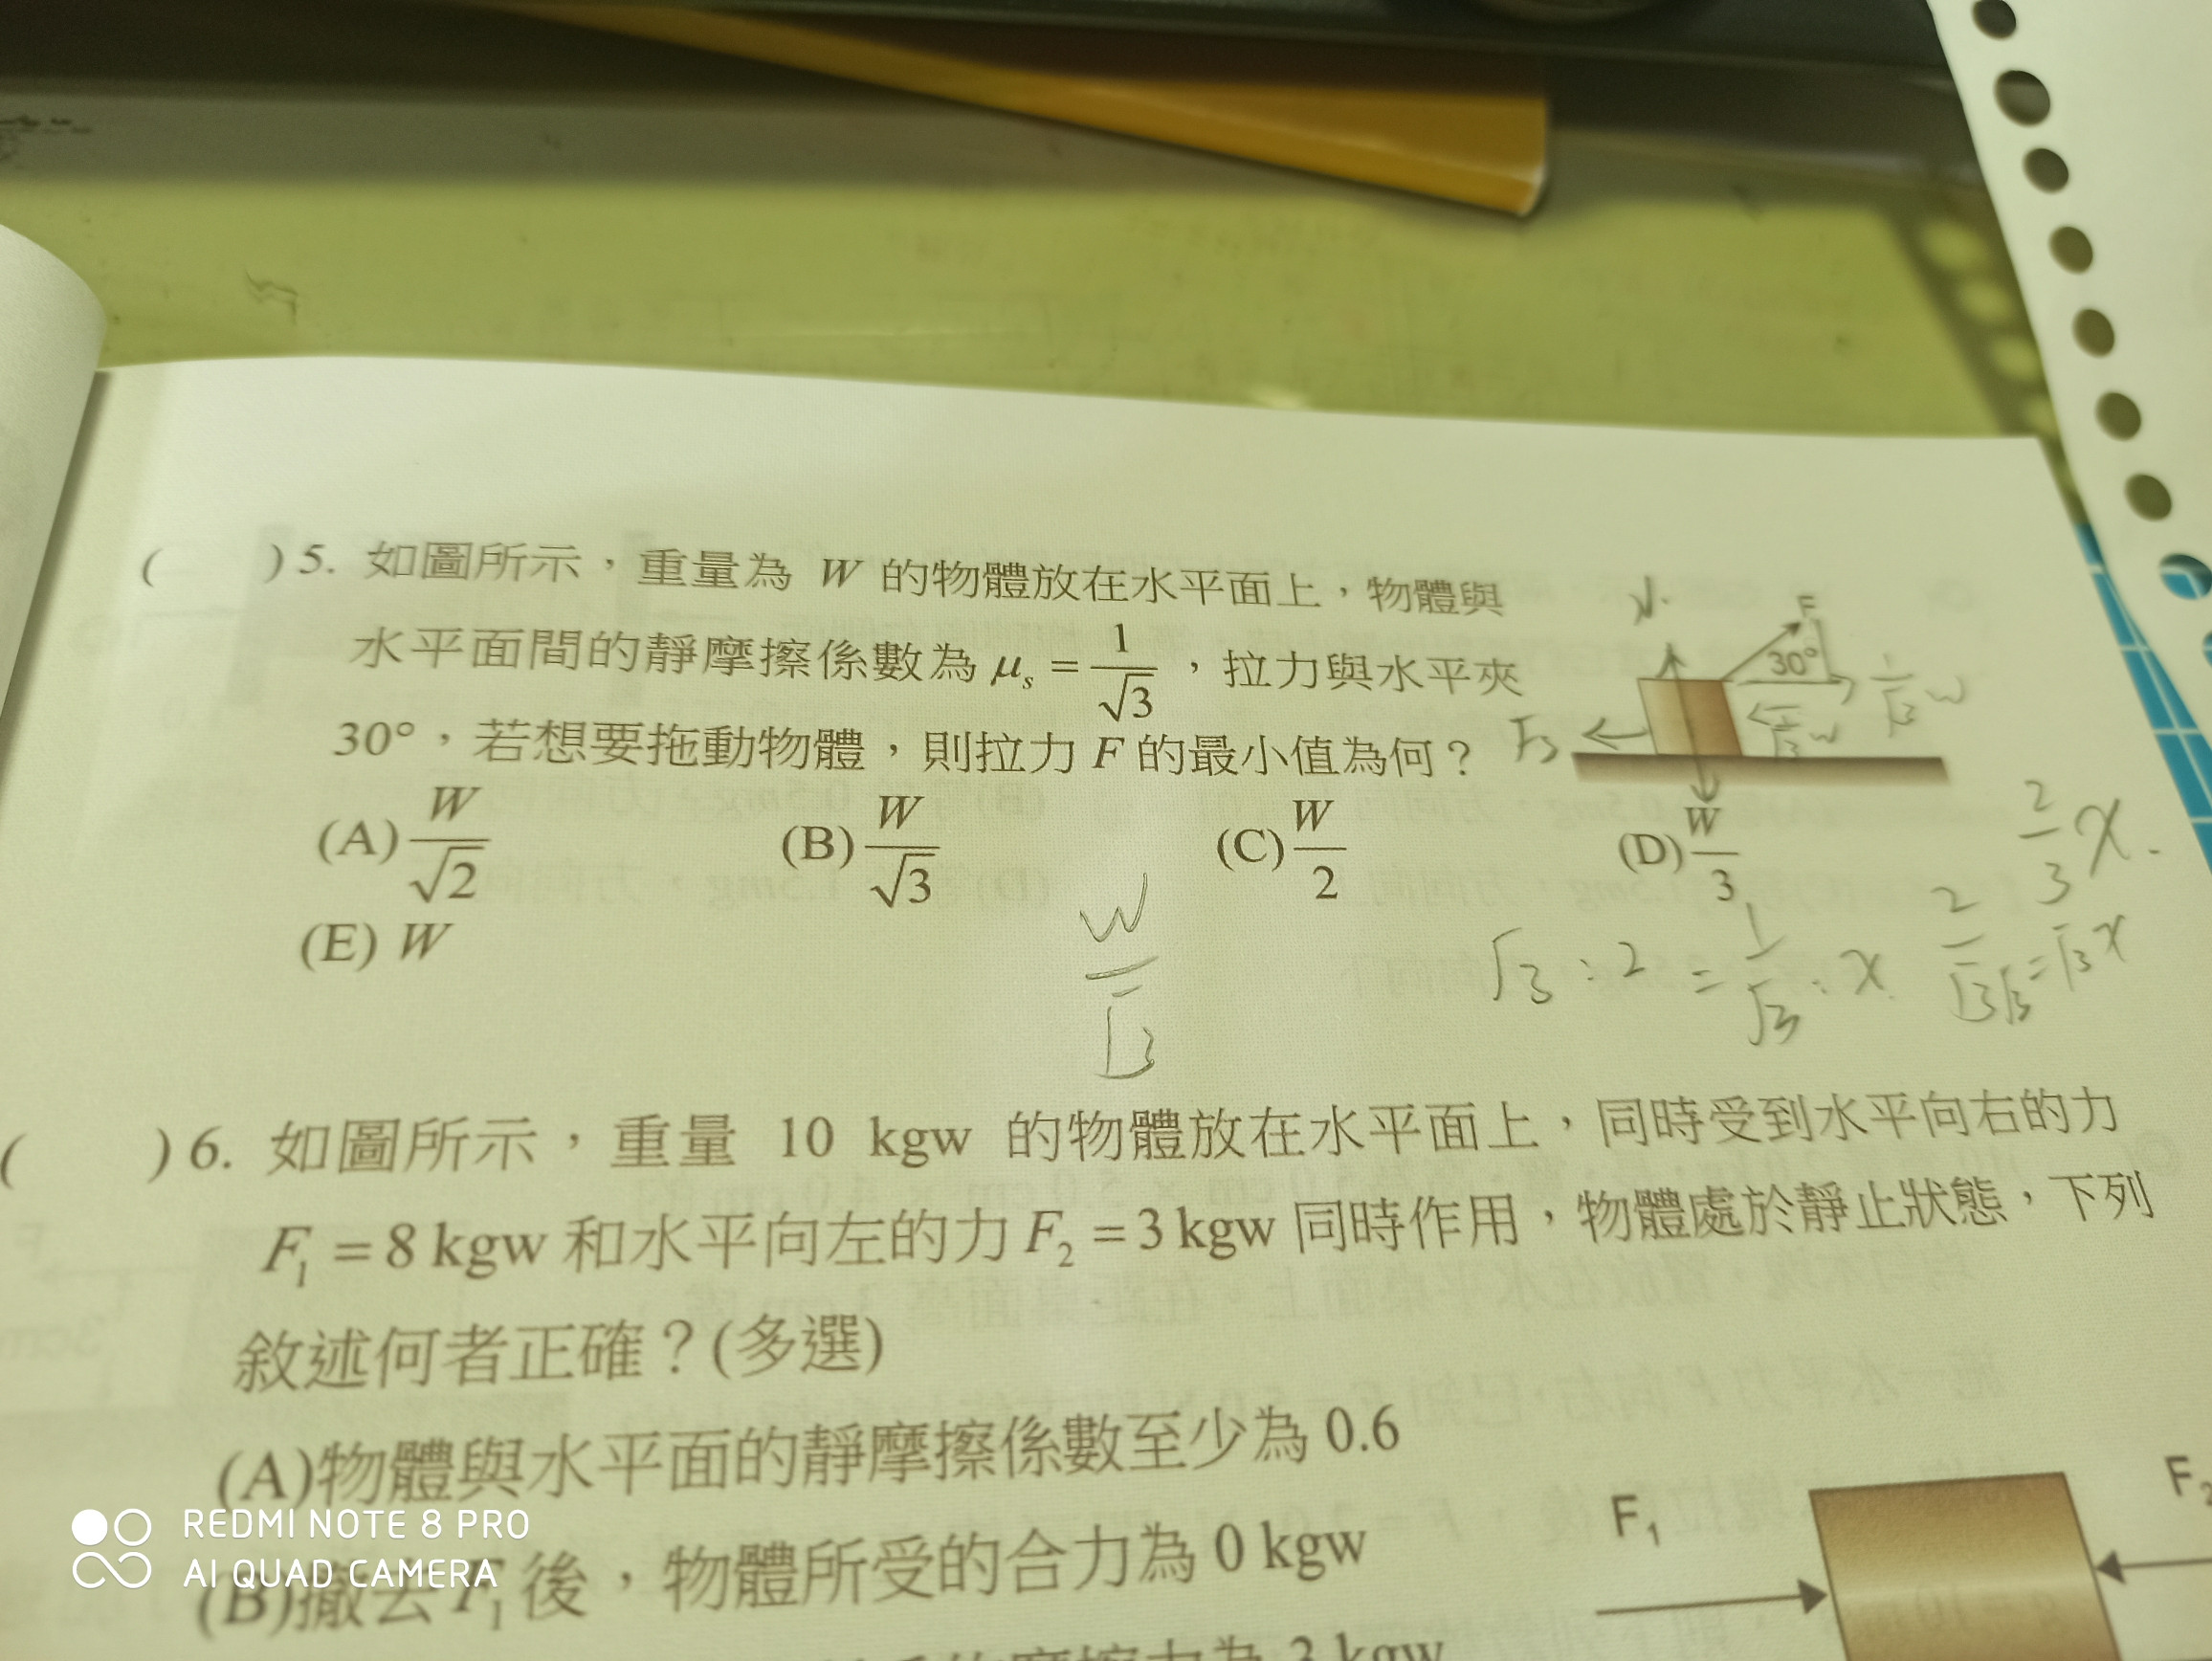 ( ) 5. 如圖所示，重量為 W 的物體放在水平面上，物體與
水平面間的靜摩擦係數為 μs = 1/√3 ，拉力與水平夾
30°，若想要拖動物體，則拉力 F 的最小值為何？
(A) W/√2 (B) W/√3 (C) W/2 (D) W/3
(E) W
N
F
30°
1/√3 W
1/√3 W
W/√3
2/3 x
√3 : 2 = 1/√3 : x
( ) 6. 如圖所示，重量 10 kgw 的物體放在水平面上，同時受到水平向右的力
F1 = 8 kgw 和水平向左的力 F2 = 3 kgw 同時作用，物體處於靜止狀態，下列
敘述何者正確？(多選)
(A)物體與水平面的靜摩擦係數至少為 0.6
(B)撤去 F1 後，物體所受的合力為 0 kgw
F1
F2
REDMI NOTE 8 PRO
AI QUAD CAMERA